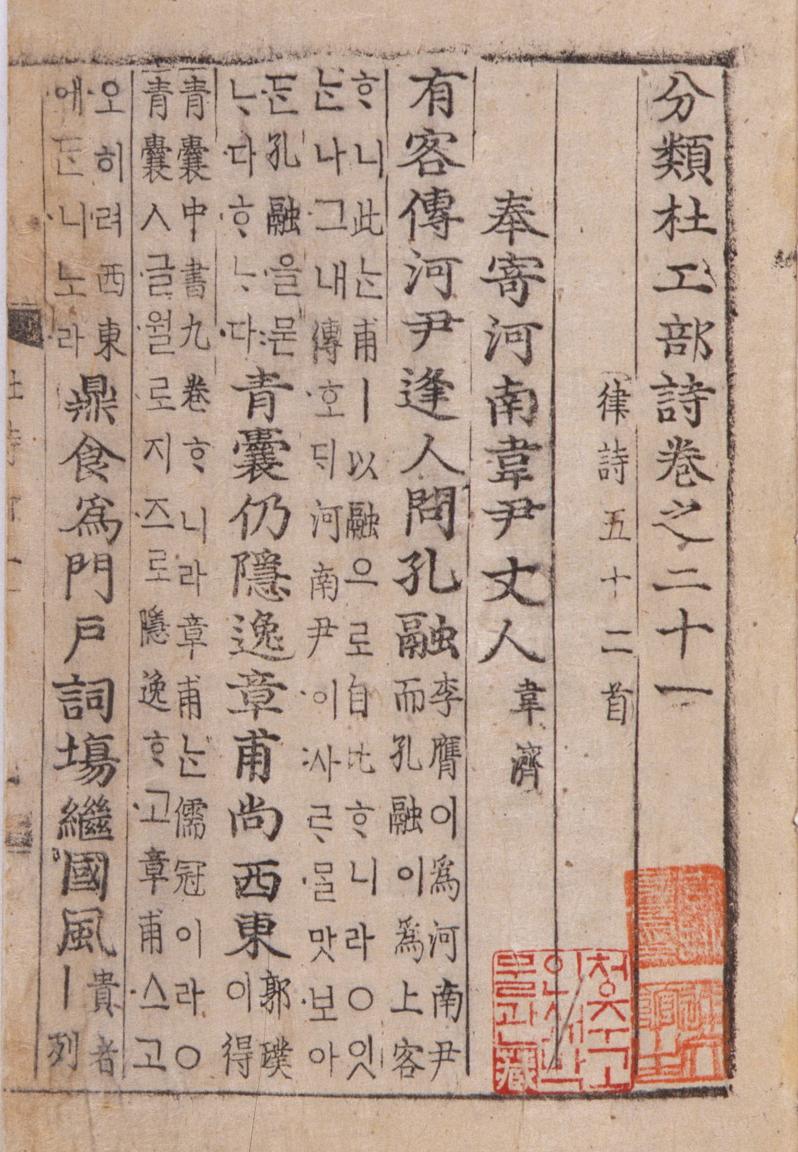 分類杜工部詩卷之二十一
律詩五十二首
奉寄河南韋尹丈人 韋濟
有客傳河尹逢人問孔融 李膺이爲河南尹
而孔融이爲上客
ᄒᆞ니此ᄂᆞᆫ甫ㅣ以融으로自比ᄒᆞ니라○잇
ᄂᆞᆫ나그내傳호ᄃᆡ河南尹이사ᄅᆞᄆᆞᆯ맛보아
ᄃᆞᆫ孔融을묻
ᄂᆞ다ᄒᆞᄂᆞ다
青囊仍隱逸章甫尚西東 郭璞
이得
青囊中書九卷ᄒᆞ니라章甫ᄂᆞᆫ儒冠이라○
青囊ㅅ글월로지즈로隱逸ᄒᆞ고章甫스고
오히려西東
에ᄃᆞᆫ니노라
鼎食爲門戶詞場繼國風 貴者
ㅣ列
청주고인쇄박물관藏